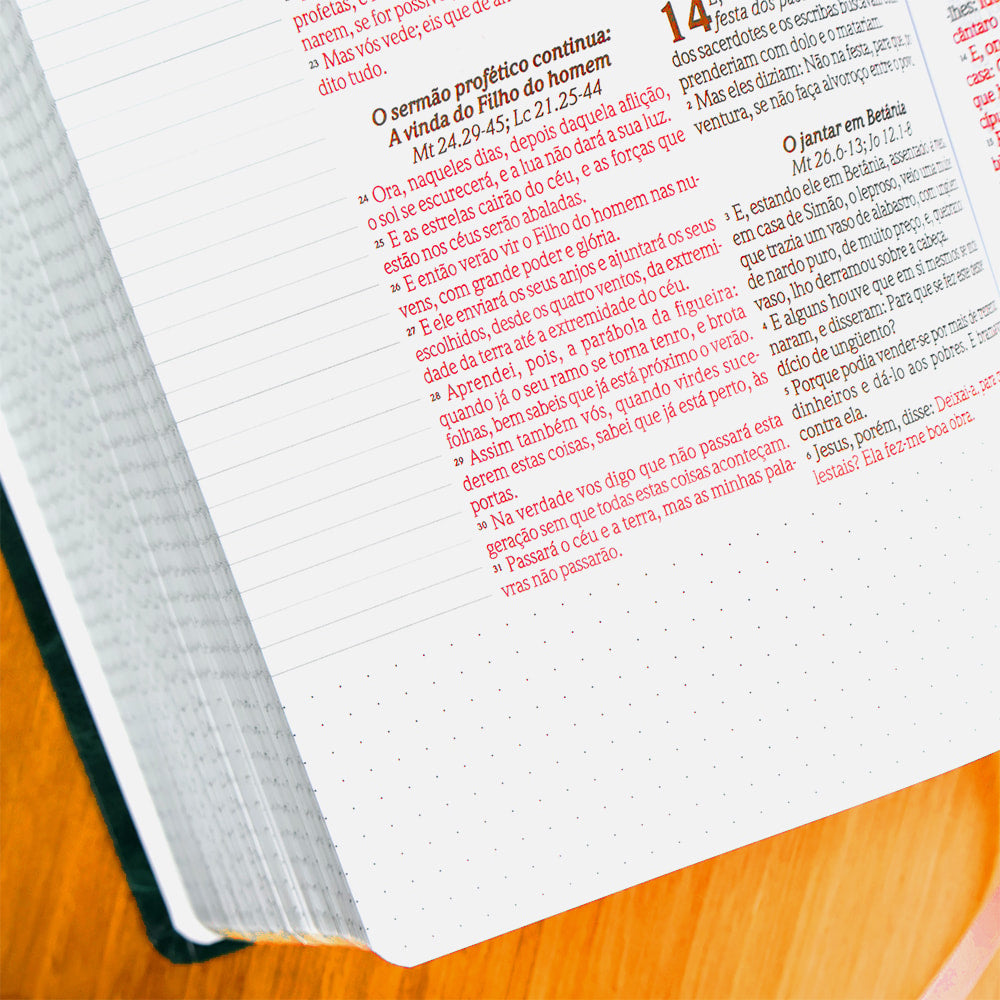 profetas, e
narem, se for possív
23 Mas vós vede; eis que de an
dito tudo.
O sermão profético continua:
A vinda do Filho do homem
Mt 24.29-45; Lc 21.25-44
24 Ora, naqueles dias, depois daquela aflição,
o sol se escurecerá, e a lua não dará a sua luz.
25 E as estrelas cairão do céu, e as forças que
estão nos céus serão abaladas.
26 E então verão vir o Filho do homem nas nu-
vens, com grande poder e glória.
27 E ele enviará os seus anjos e ajuntará os seus
escolhidos, desde os quatro ventos, da extremi-
dade da terra até a extremidade do céu.
28 Aprendei, pois, a parábola da figueira:
quando já o seu ramo se torna tenro, e brota
folhas, bem sabeis que já está próximo o verão.
29 Assim também vós, quando virdes suce-
derem estas coisas, sabei que já está perto, às
portas.
30 Na verdade vos digo que não passará esta
geração sem que todas estas coisas aconteçam.
31 Passará o céu e a terra, mas as minhas pala-
vras não passarão.
14
festa dos
dos sacerdotes e os escribas buscavam
prenderiam com dolo e o matariam.
2 Mas eles diziam: Não na festa, para que
ventura, se não faça alvoroço entre o pov
O jantar em Betânia
Mt 26.6-13; Jo 12.1-8
3 E, estando ele em Betânia, assentado
em casa de Simão, o leproso, veio uma
que trazia um vaso de alabastro, com
de nardo puro, de muito preço, e, quebrando
vaso, lho derramou sobre a cabeça.
4 E alguns houve que em si mesmos se
naram, e disseram: Para que se fez este
dício de ungüento?
5 Porque podia vender-se por mais de
dinheiros e dá-lo aos pobres. E
contra ela.
6 Jesus, porém, disse: Deixai-a, para
lestais? Ela fez-me boa obra.
lhes:
cântaro
14 E, on
casa:
que
15